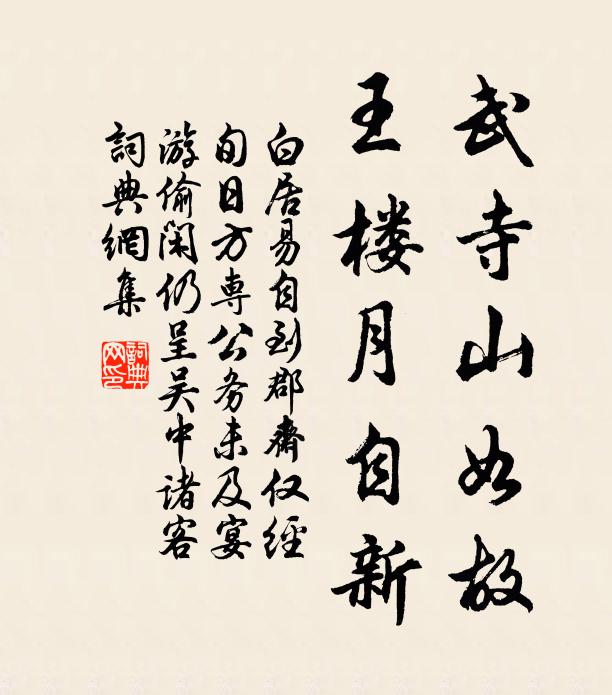 武寺山如故
王楼月自新
白居易自到郡齋仅經
旬日方専公务未及宴
游偷闲仍呈吴中諸客
詞典網集
詞典网印